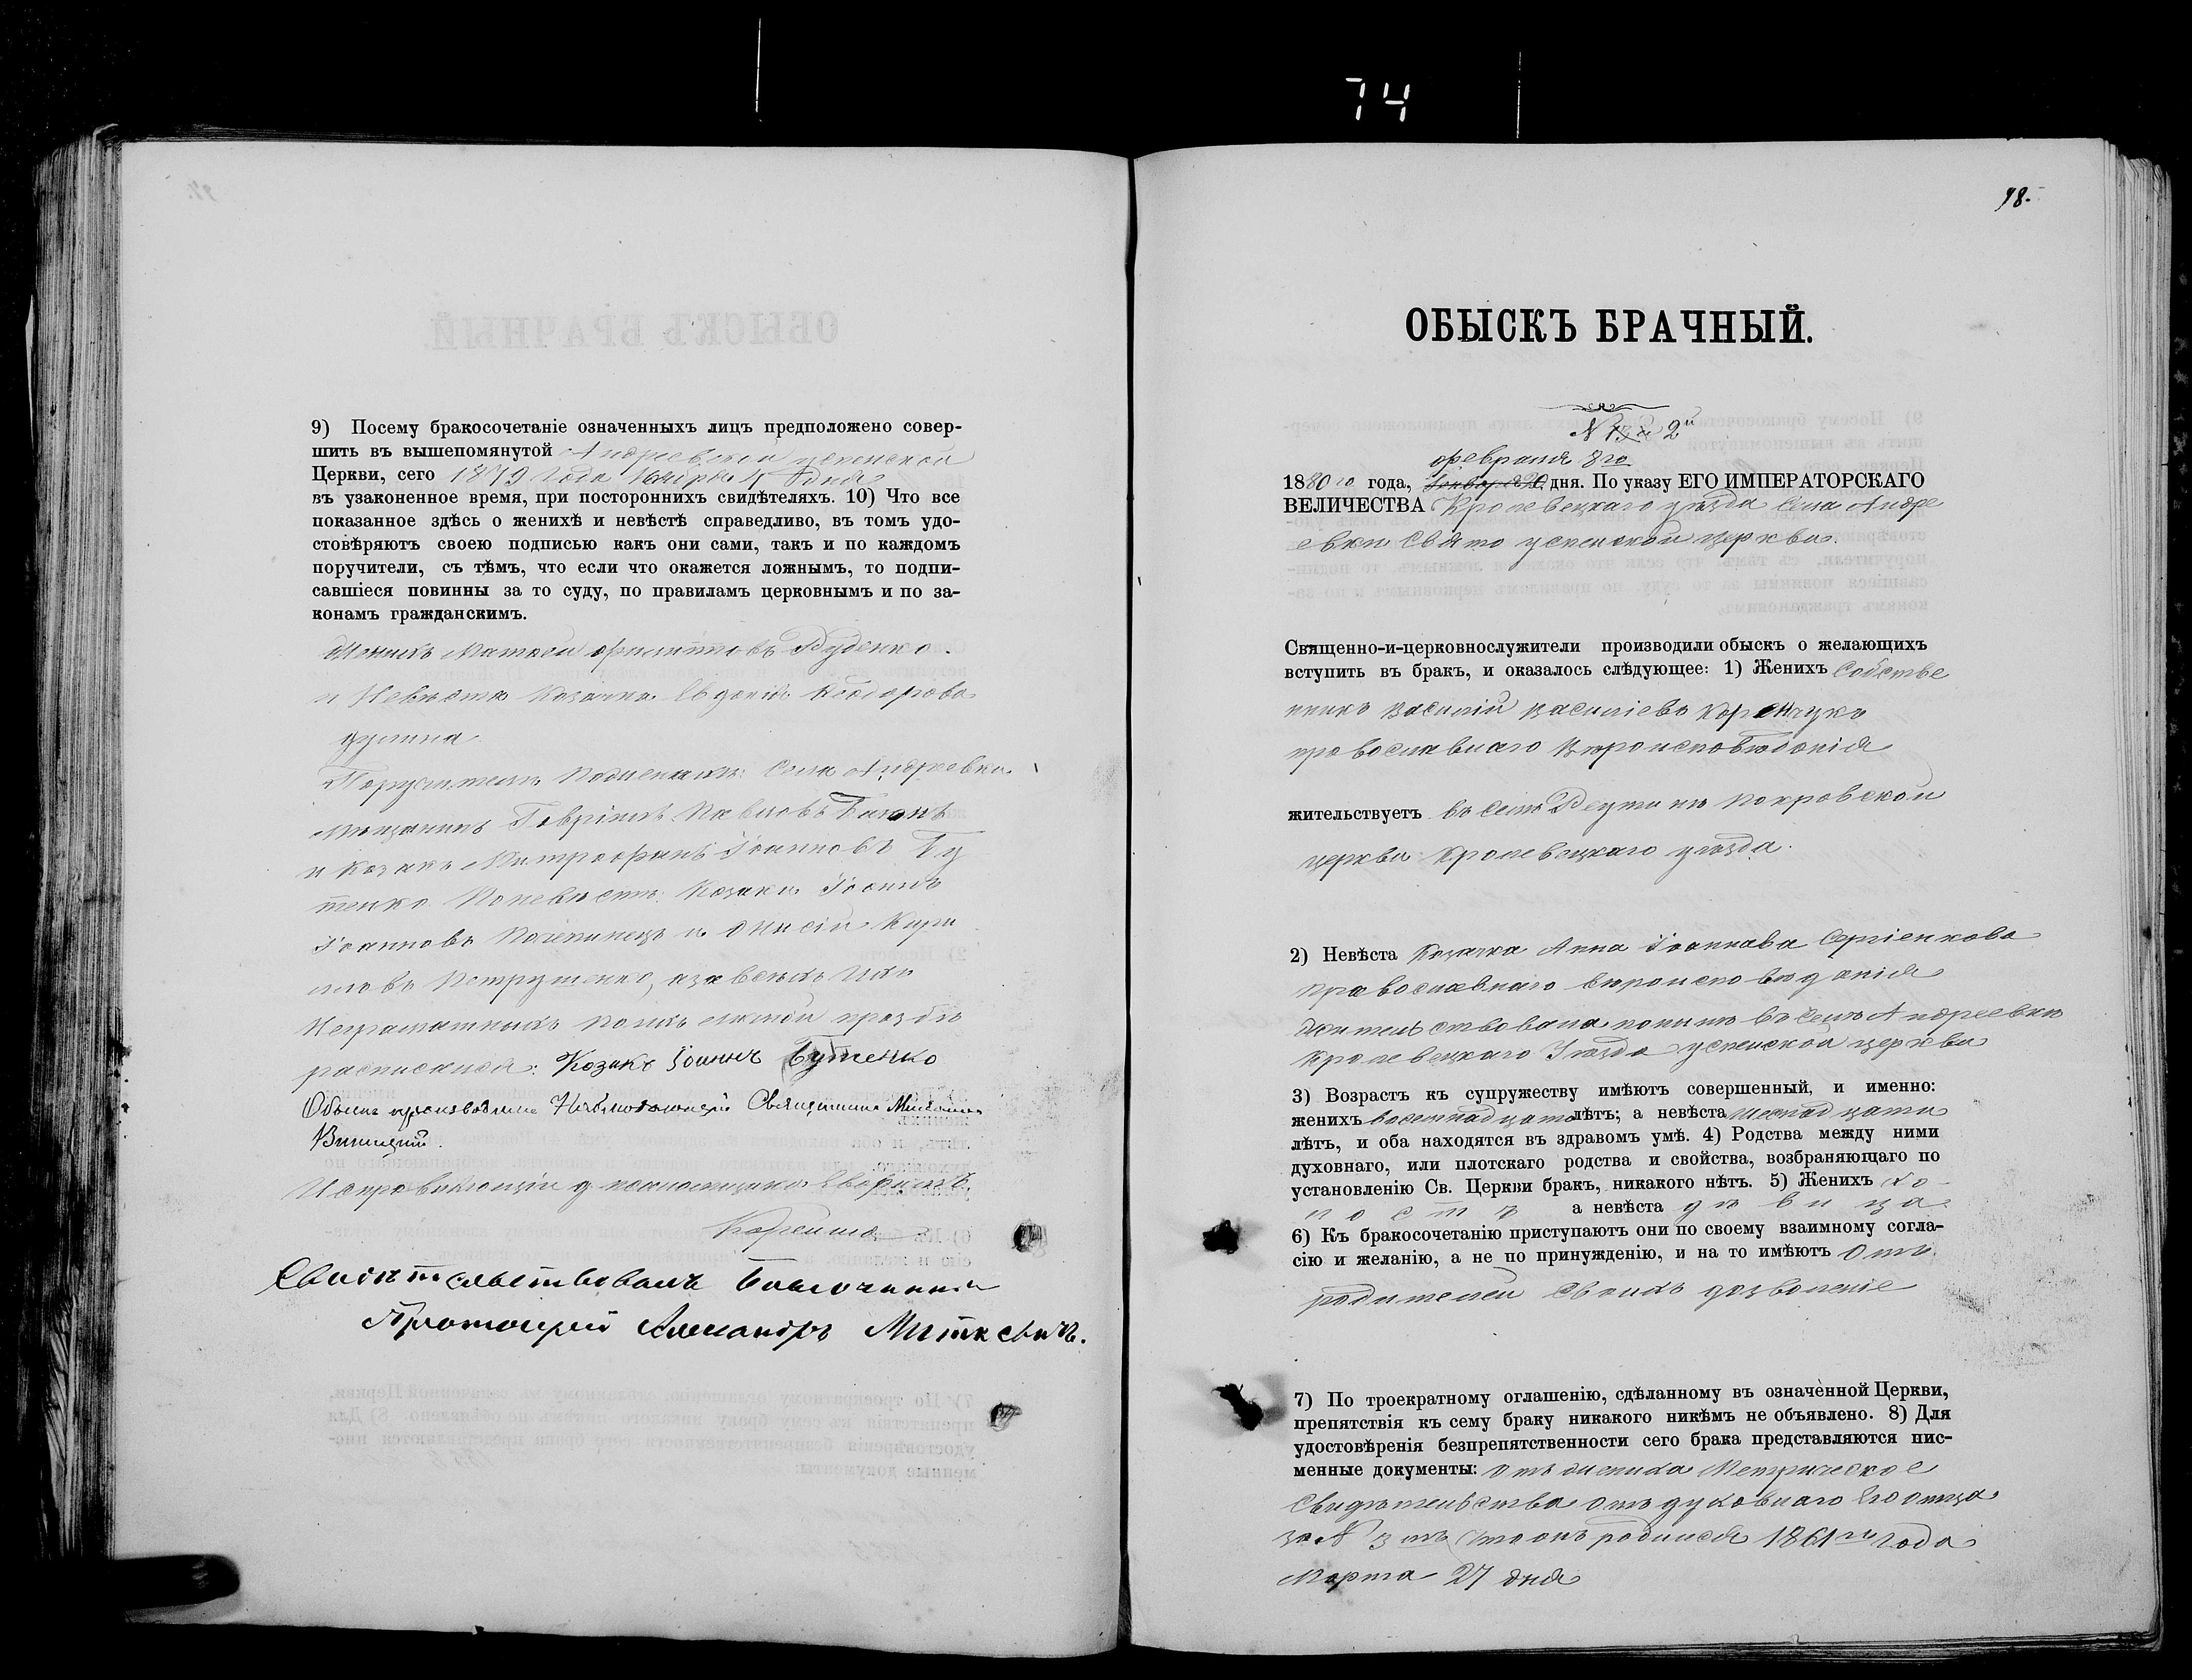 74
9) Посему бракосочетаніе означенныхъ лицъ предположено совер-
шить въ вышепомянутой Андреевской успенской
Церкви, сего 1879 года
въ узаконенное время, при постороннихъ свидѣтеляхъ. 10) Что все
показанное здѣсь о женихѣ и невѣстѣ справедливо, въ томъ удо-
стовѣряютъ своею подписью какъ они сами, такъ и по каждомъ
поручители, съ тѣмъ, что если что окажется ложнымъ, то подпи-
савшіеся повинны за то суду, по правиламъ церковнымъ и по за-
конамъ гражданскимъ.
Женихъ Матѳей Филиповъ Руденко.
и Невѣста Козачка Евдокія Ѳеодорова
Поручители по Женихѣ: Села Андреевки
Мещанинъ Гавріилъ Павловъ
и Козакъ Митрофанъ Іоанновъ Бу
тенко По невѣстѣ: Козаки Іоаннъ
Іоанновъ и Онисій Кири
ловъ Петрушенко, а за всѣхъ ихъ
Неграматныхъ по ихъ личной прозбѣ
росписался: Козакъ Іоаннъ Бутенко
Обыскъ производилъ Наблюдающій Священникъ Михаилъ
Исправляющій д. псаломщика
Свидѣтельствовалъ Благочинный
Протоіерей Александръ Миткевичъ.
98.
ОБЫСКЪ БРАЧНЫЙ.
№ 2й
февраля 8го
1880го года, дня. По указу ЕГО ИМПЕРАТОРСКАГО
ВЕЛИЧЕСТВА Кролевецкаго уѣзда Села Андре
евки Свято успенской церкви.
Священно-и-церковнослужители производили обыскъ о желающихъ
вступить въ бракъ, и оказалось слѣдующее: 1) Женихъ Собстве
нникъ Василій Василіевъ
православнаго Вѣроисповѣданія
жительствуетъ въ Селѣ Реутинѣ покровской
церкви Кролевецкаго уѣзда.
2) Невѣста Козачка Анна Іоаннова Сергіенкова
православнаго вѣроисповѣданія
жительствовала понынѣ въ Селѣ Андреевки
Кролевецкаго Уѣзда успенской церкви
3) Возрастъ къ супружеству имѣютъ совершенный, и именно:
женихъ восемнадцать лѣтъ; а невѣста
лѣтъ, и оба находятся въ здравомъ умѣ. 4) Родства между ними
духовнаго, или плотскаго родства и свойства, возбраняющаго по
установленію Св. Церкви бракъ, никакого нѣтъ. 5) Женихъ хо-
лостъ а невѣста дѣвица
6) Къ бракосочетанію приступаютъ они по своему взаимному согла-
сію и желанію, а не по принужденію, и на то имѣютъ Отъ
родителей Своихъ дозволеніе
7) По троекратному оглашенію, сдѣланному въ означенной Церкви,
препятствія къ сему браку никакого никѣмъ не объявлено. 8) Для
удостовѣренія безпрепятственности сего брака представляются пис-
менные документы: Отъ жениха Метрическое
Свидѣтельство отъ духовнаго Его отца
за № 3 мъ что онъ родился 1861го года
Марта 27 дня